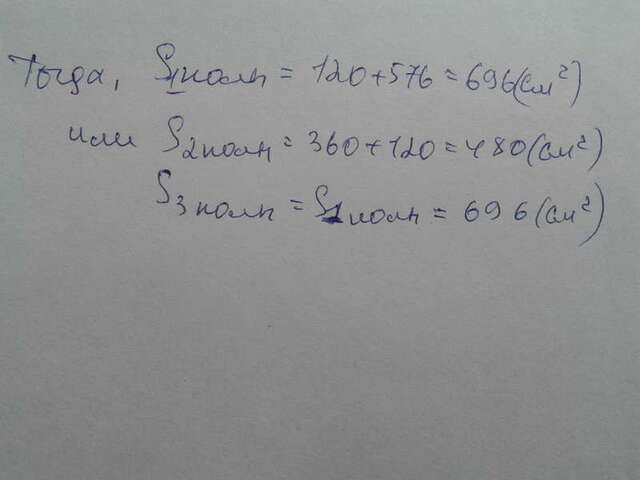 Тогда, S1полн = 120+576=696(см²)
или S2полн = 360+120=480(см²)
S3полн = S1полн = 696(см²)